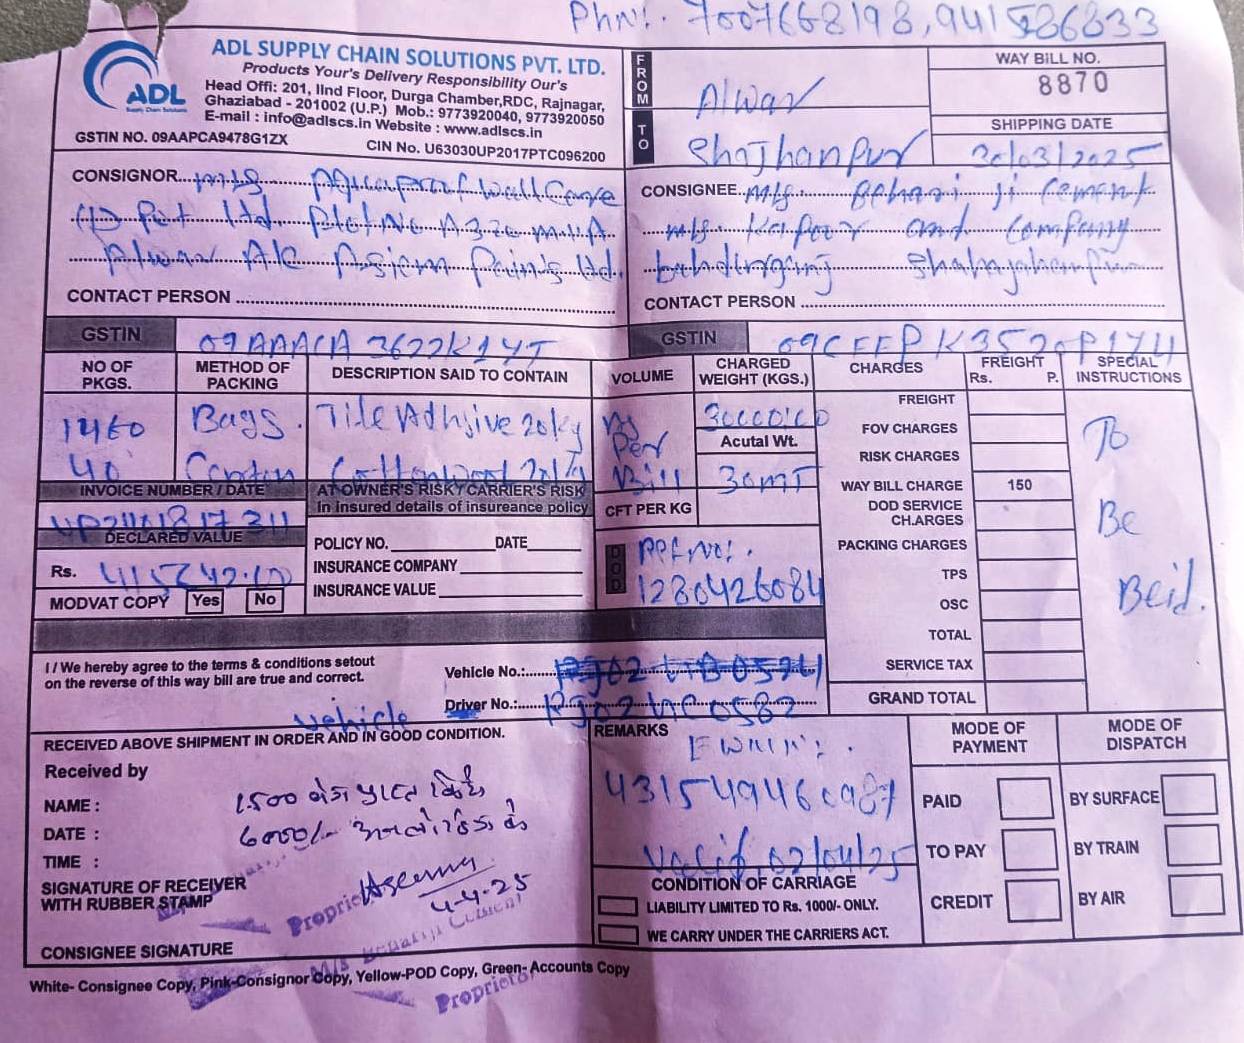 Phn!. 7007668198, 941586833
ADL
Supply Chain Solutions
ADL SUPPLY CHAIN SOLUTIONS PVT. LTD.
Products Your's Delivery Responsibility Our's
Head Offi: 201, IInd Floor, Durga Chamber,RDC, Rajnagar,
Ghaziabad - 201002 (U.P.) Mob.: 9773920040, 9773920050
E-mail : info@adlscs.in Website : www.adlscs.in
GSTIN NO. 09AAPCA9478G1ZX
CIN No. U63030UP2017PTC096200
FROM Alwar
TO Shajhanpur
WAY BILL NO.
8870
SHIPPING DATE
30/03/2025
CONSIGNOR M/s
(I) Pvt Ltd Plot No A320 M.I.A
Alwar A/c Asion Paints Ltd.
CONTACT PERSON
CONSIGNEE. M/s. Behari ji Cement
M/s. Kapoor and Company
bahdurganj Shahajahanpur
CONTACT PERSON
GSTIN 09AAACA3622K1YT
GSTIN 09CFFPK3520P1Y4
NO OF PKGS.
METHOD OF PACKING
DESCRIPTION SAID TO CONTAIN
VOLUME
CHARGED WEIGHT (KGS.)
CHARGES
FREIGHT
Rs. P.
SPECIAL INSTRUCTIONS
1460 Bags. Tile Adhsive 20kg
40 Carton
As Per Bill
30000.00
Acutal Wt.
30MT
CFT PER KG
To Be Beid.
FREIGHT
FOV CHARGES
RISK CHARGES
WAY BILL CHARGE 150
DOD SERVICE CH.ARGES
PACKING CHARGES
TPS
OSC
TOTAL
SERVICE TAX
GRAND TOTAL
INVOICE NUMBER / DATE
UP211018 17 311
DECLARED VALUE
Rs. 415742.00
MODVAT COPY Yes No
AT OWNER'S RISK / CARRIER'S RISK
In Insured details of insureance policy
POLICY NO. DATE
INSURANCE COMPANY
INSURANCE VALUE
DOD
Ref No!.
1280426084
I / We hereby agree to the terms & conditions setout
on the reverse of this way bill are true and correct.
Vehicle No.:
Driver No.: RJ02HC0582
Vehicle
RECEIVED ABOVE SHIPMENT IN ORDER AND IN GOOD CONDITION.
Received by
NAME :
DATE :
TIME :
1500 बैग प्राप्त किये
6000/-
4-4-25
SIGNATURE OF RECEIVER
WITH RUBBER STAMP
Proprietor
CONSIGNEE SIGNATURE
M/s Behariji Cement
Proprietor
REMARKS
EWAY N:.
431549460987
Valid. 02/04/25
CONDITION OF CARRIAGE
LIABILITY LIMITED TO Rs. 1000/- ONLY.
WE CARRY UNDER THE CARRIERS ACT.
MODE OF PAYMENT
PAID
TO PAY
CREDIT
MODE OF DISPATCH
BY SURFACE
BY TRAIN
BY AIR
White- Consignee Copy, Pink-Consignor Copy, Yellow-POD Copy, Green- Accounts Copy